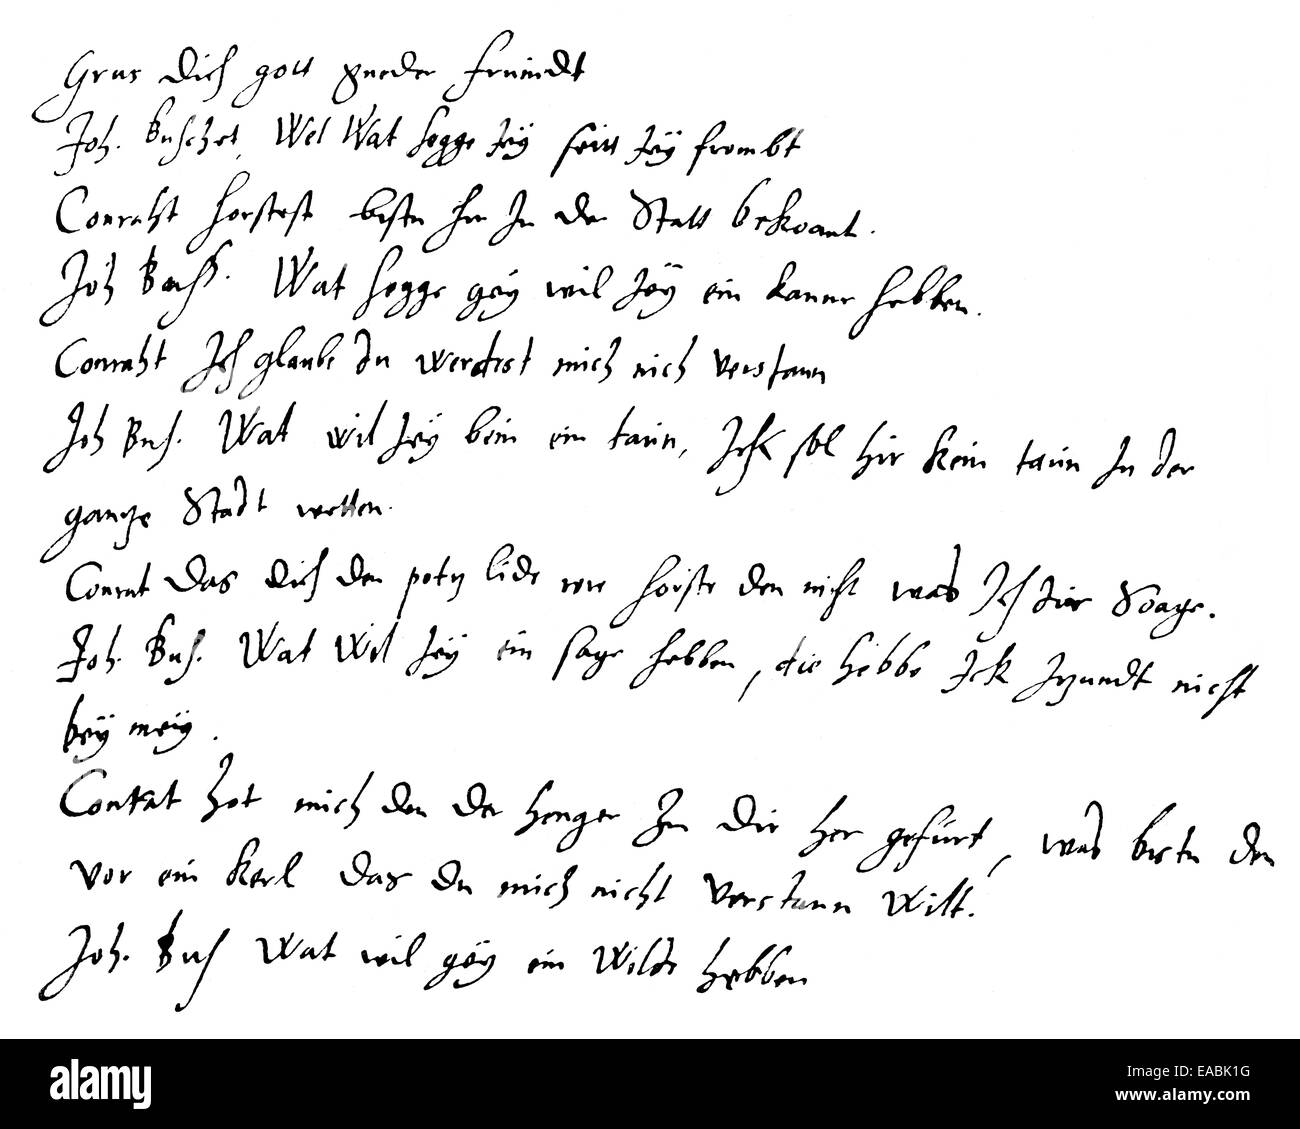 Grus dich gott gueder freündt
Joh. Buschet, Wel Wat segge jey seitt jey frombt
Conraht horstest bistu hir In der Statt bekoant.
Joh Busch. Wat segge gey wil jey ein kanne hebben.
Conraht Ich glaube du werdest mich nich verstann
Joh Bus. Wat wil jey bein ein taün, Ick sol hir kein taün In der
gantze Stadt wetten.
Conrat das dich den potz lide horste den nicht was Ich dir Soage.
Joh. Bus. Wat Wil jey ein sage hebben, die hebbe Ick Itzundt nicht
bey mey.
Conrat hot mich den der henger zu dir her gefürt, was bistu den
vor ein kerl das du mich nicht verstann Wilt.
Joh. Bus Wat wil gey ein Wilde hebben
alamy
Image ID: EABK1G
www.alamy.com